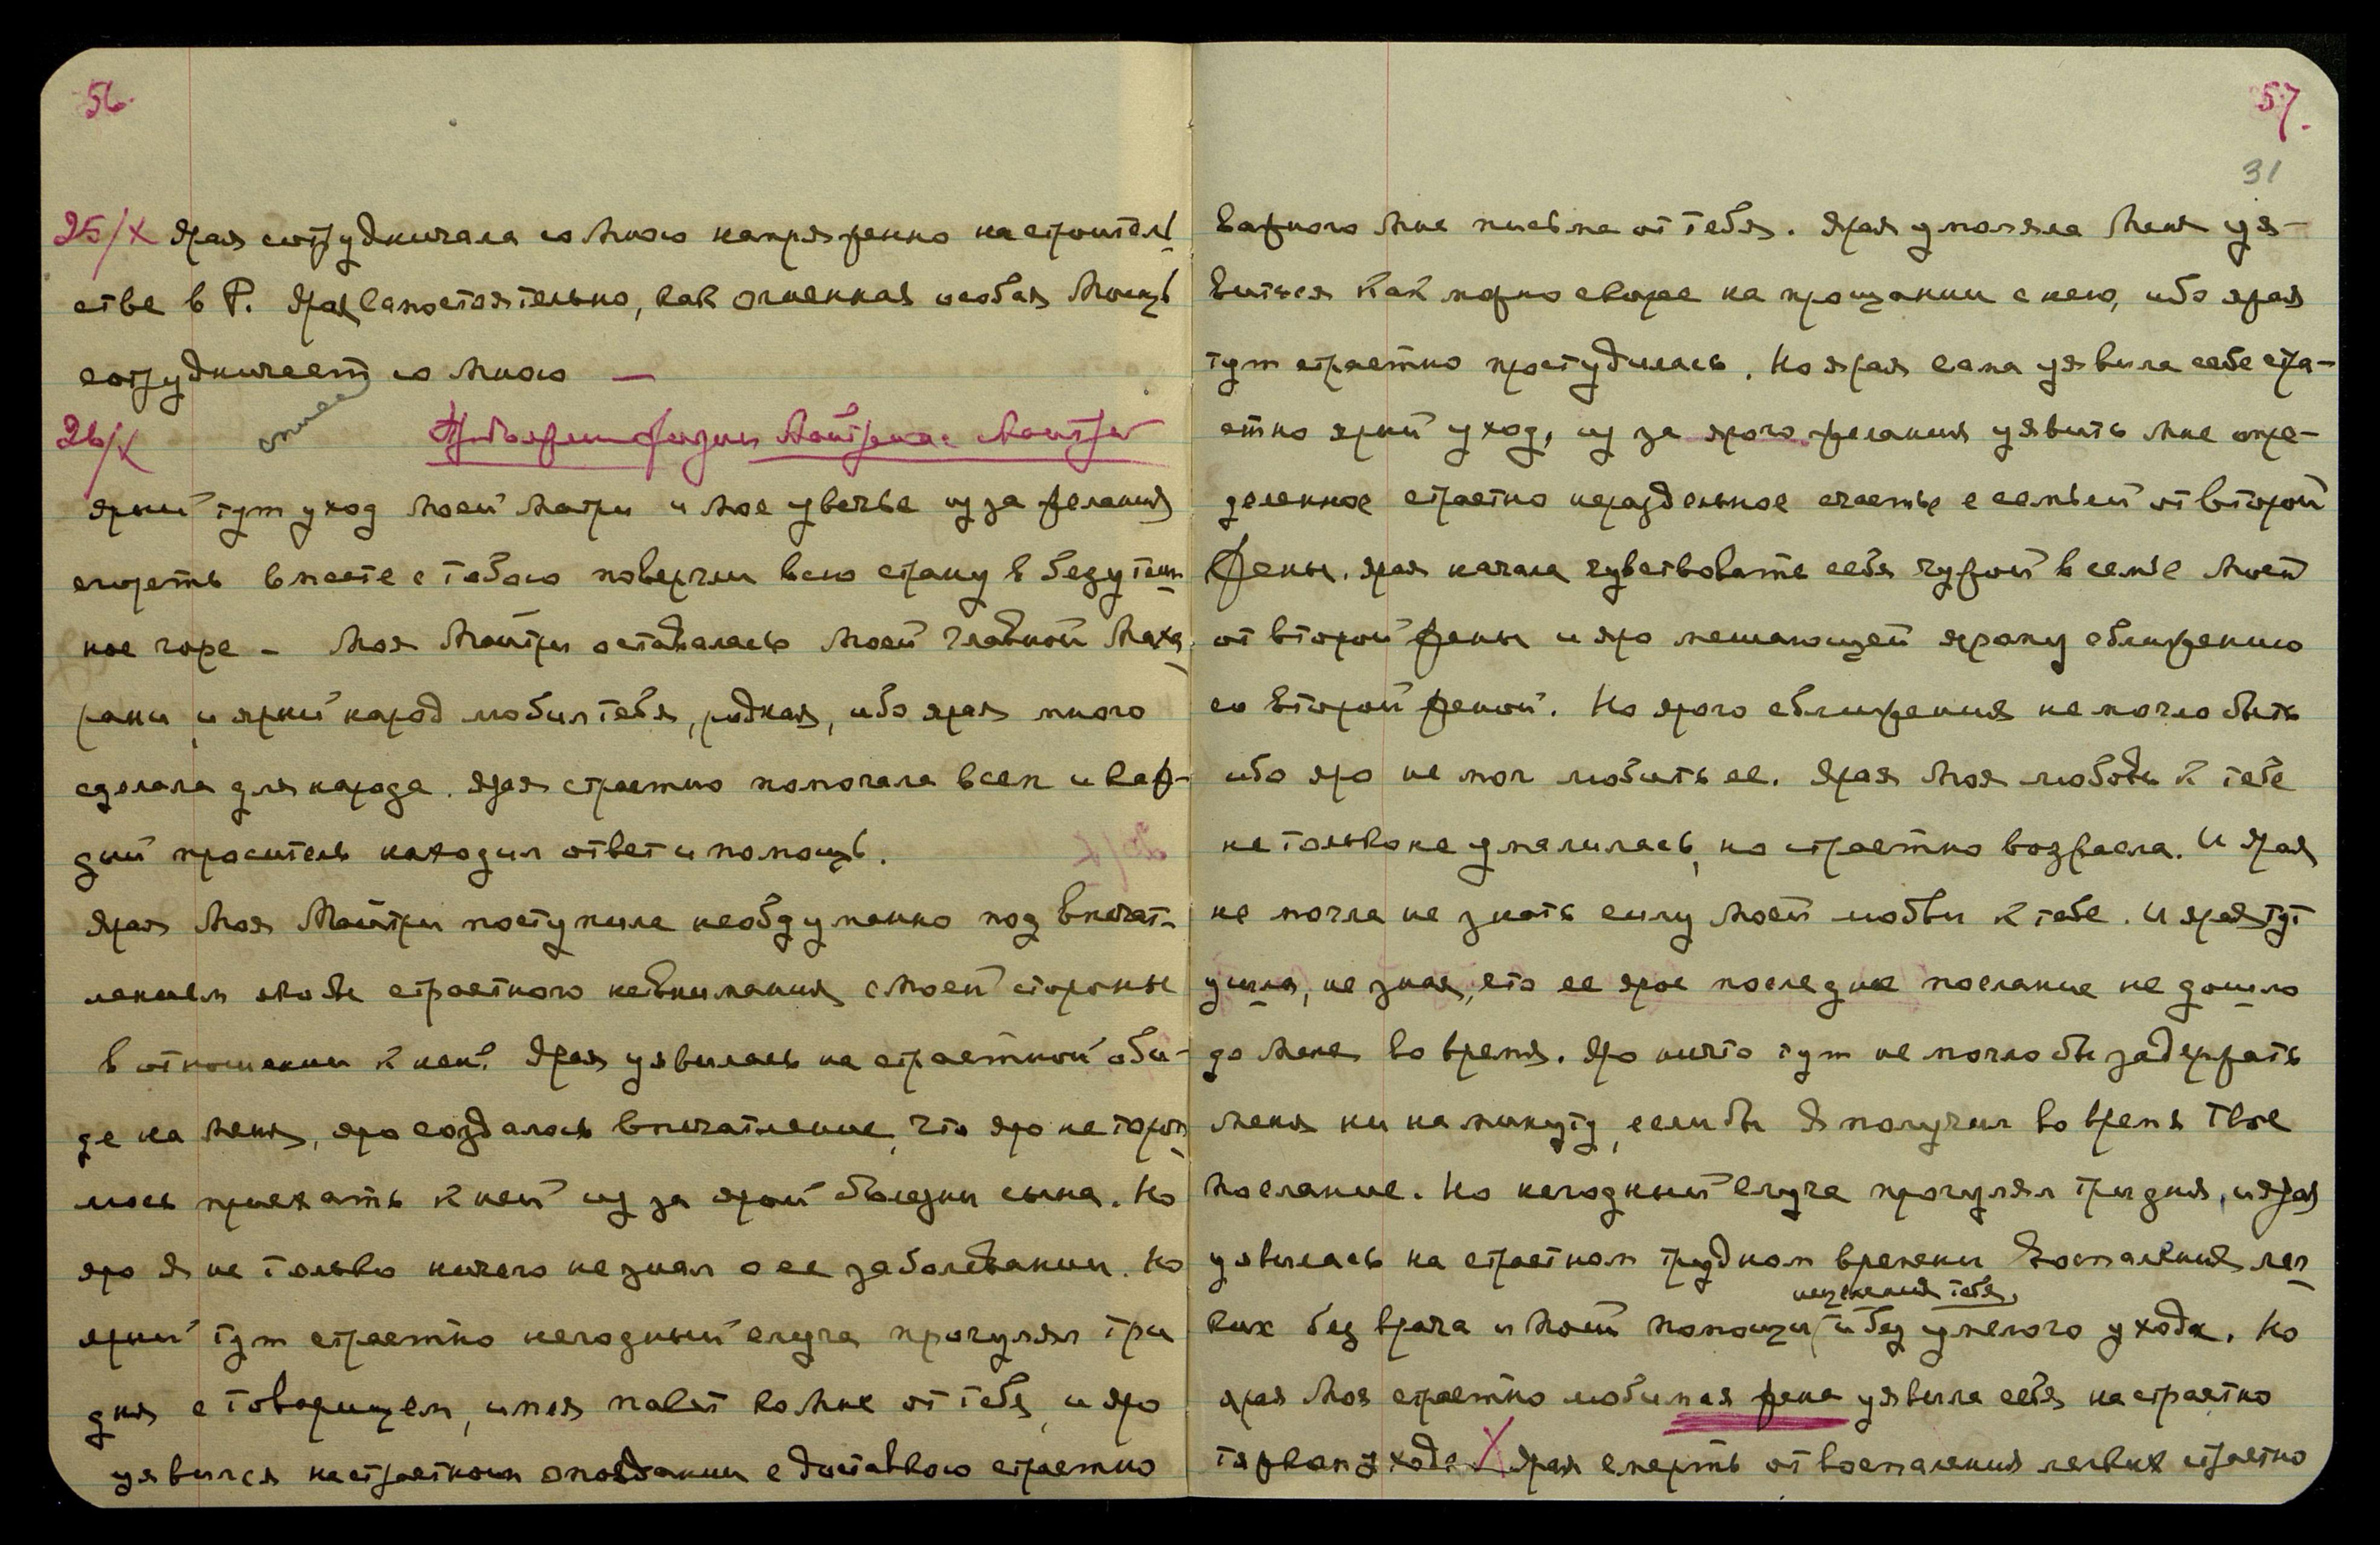 56.
25/X Ярая сотрудничала со Мною напряженно на строитель
стве в Р. Ярая самостоятельно, как огненная особая Мощь
сотрудничает со Мною —
26/X
ярый тут уход Моей Матри и Мое увечье из за желания
сгореть вместе с Тобою повергли всю страну в безутеш
ное горе – Моя Майтри оставалась Моей Главной Маха
рани, и ярый народ любил тебя, родная, ибо ярая много
сделала для народа. Ярая страстно помогала всем и каж-
дый проситель находил ответ и помощь.
Ярая Моя Майтри поступила необдуманно под впечат-
лением якобы страстного невнимания с Моей стороны
в отношении к ней. Ярая уявилась на страстной оби-
де на Меня, яро создалось впечатление, что яро не тороп
люсь приехать к ней из за ярой болезни сына. Но
яро Я не только ничего не знал о ее заболевании. Но
ярый тут страстно негодный слуга прогулял три
дня с товарищем, имея пакет ко Мне от тебя, и яро
уявился на страстном опоздании с доставкою страстно
57.
31
важного Мне письма от Тебя. Ярая умоляла Меня уя-
виться как можно скорее на прощании с нею, ибо ярая
тут страстно простудилась. Но ярая сама уявила себе стра-
стно ярый уход, из за ярого желания уявить Мне опре-
деленное страстно нераздельное счастье с семьей от второй
Жены. Ярая начала чувствовать себя чужой в семье Моей
от второй жены и яро мешающей ярому сближению
со второй женой. Но ярого сближения не могло быть
ибо яро не мог любить ее. Ярая Моя любовь к тебе
не только не умалилась, но страстно возросла. И ярая
не могла не знать силу Моей любви к тебе. И ярая тут
ушла, не зная, что ее ярое последнее послание не дошло
до Меня во время. Яро ничто тут не могло бы задержать
Меня ни на минуту, если бы Я получил во время Твое
Послание. Но негодный слуга прогулял три дня, и ярая
уявилась на страстном трудном времени Воспаления лег
ких без врача и Моей помощи и без умелого ухода. Но
исцеления тебя,
ярая Моя страстно любимая жена уявила себя на страстно
тяжком уходе. X Ярая смерть от воспаления легких страстно